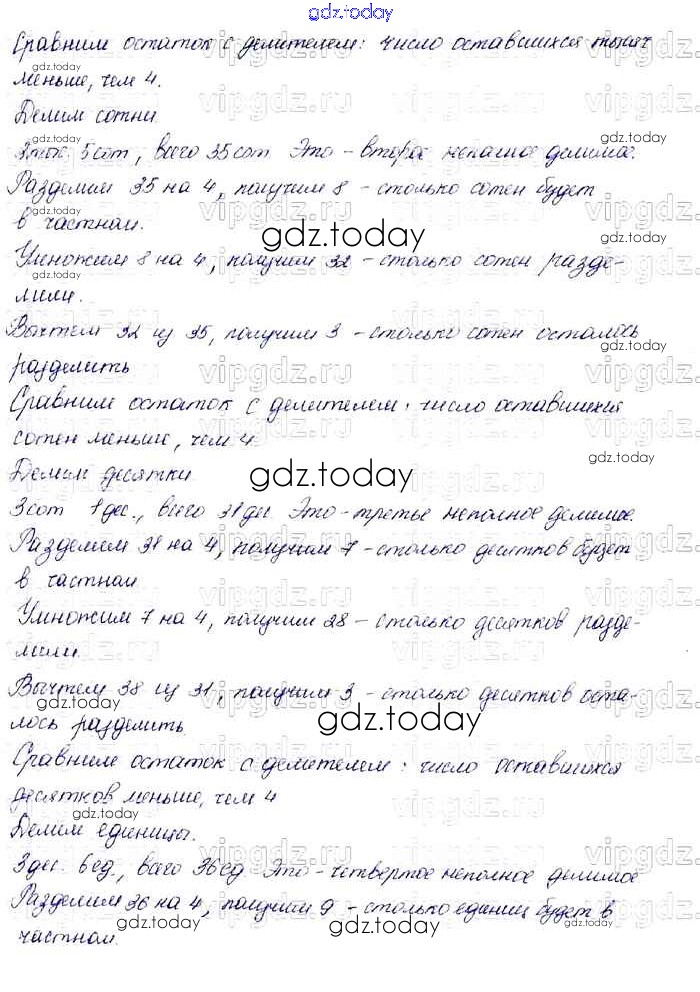 gdz.today
Сравним остаток с делителем: число оставшихся тысяч
меньше, чем 4.
Делим сотни
3тыс. 5сот, всего 35сот Это - второе неполное делимое.
Разделим 35 на 4, получим 8 - столько сотен будет
в частном.
Умножим 8 на 4, получим 32 - столько сотен разде-
лили.
Вычтем 32 из 35, получим 3 - столько сотен осталось
разделить
Сравним остаток с делителем: число оставшихся
сотен меньше, чем 4
Делим десятки
3сот 1дес., всего 31дес Это - третье неполное делимое.
Разделим 31 на 4, получим 7 - столько десятков будет
в частном
Умножим 7 на 4, получим 28 - столько десятков разде-
лили.
Вычтем 38 из 31, получим 3 - столько десятков оста-
лось разделить
Сравним остаток с делителем: число оставшихся
десятков меньше, чем 4
Делим единицы.
3дес. 6ед, всего 36ед Это - четвертое неполное делимое
Разделим 36 на 4, получим 9 - столько единиц будет в
частном.